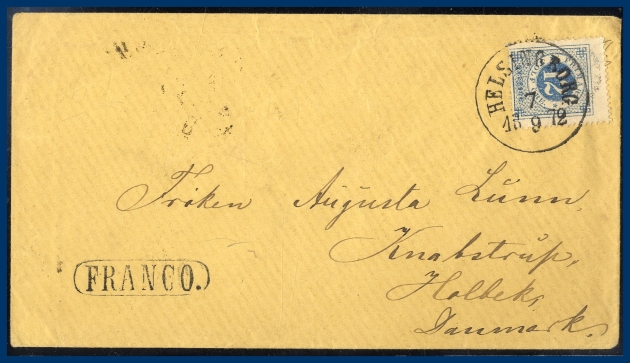 HELSINGBORG
7
15 9 72
12
Fröken Augusta Lünn.
Knabstrüp,
Holbek,
Danmark.
FRANCO.